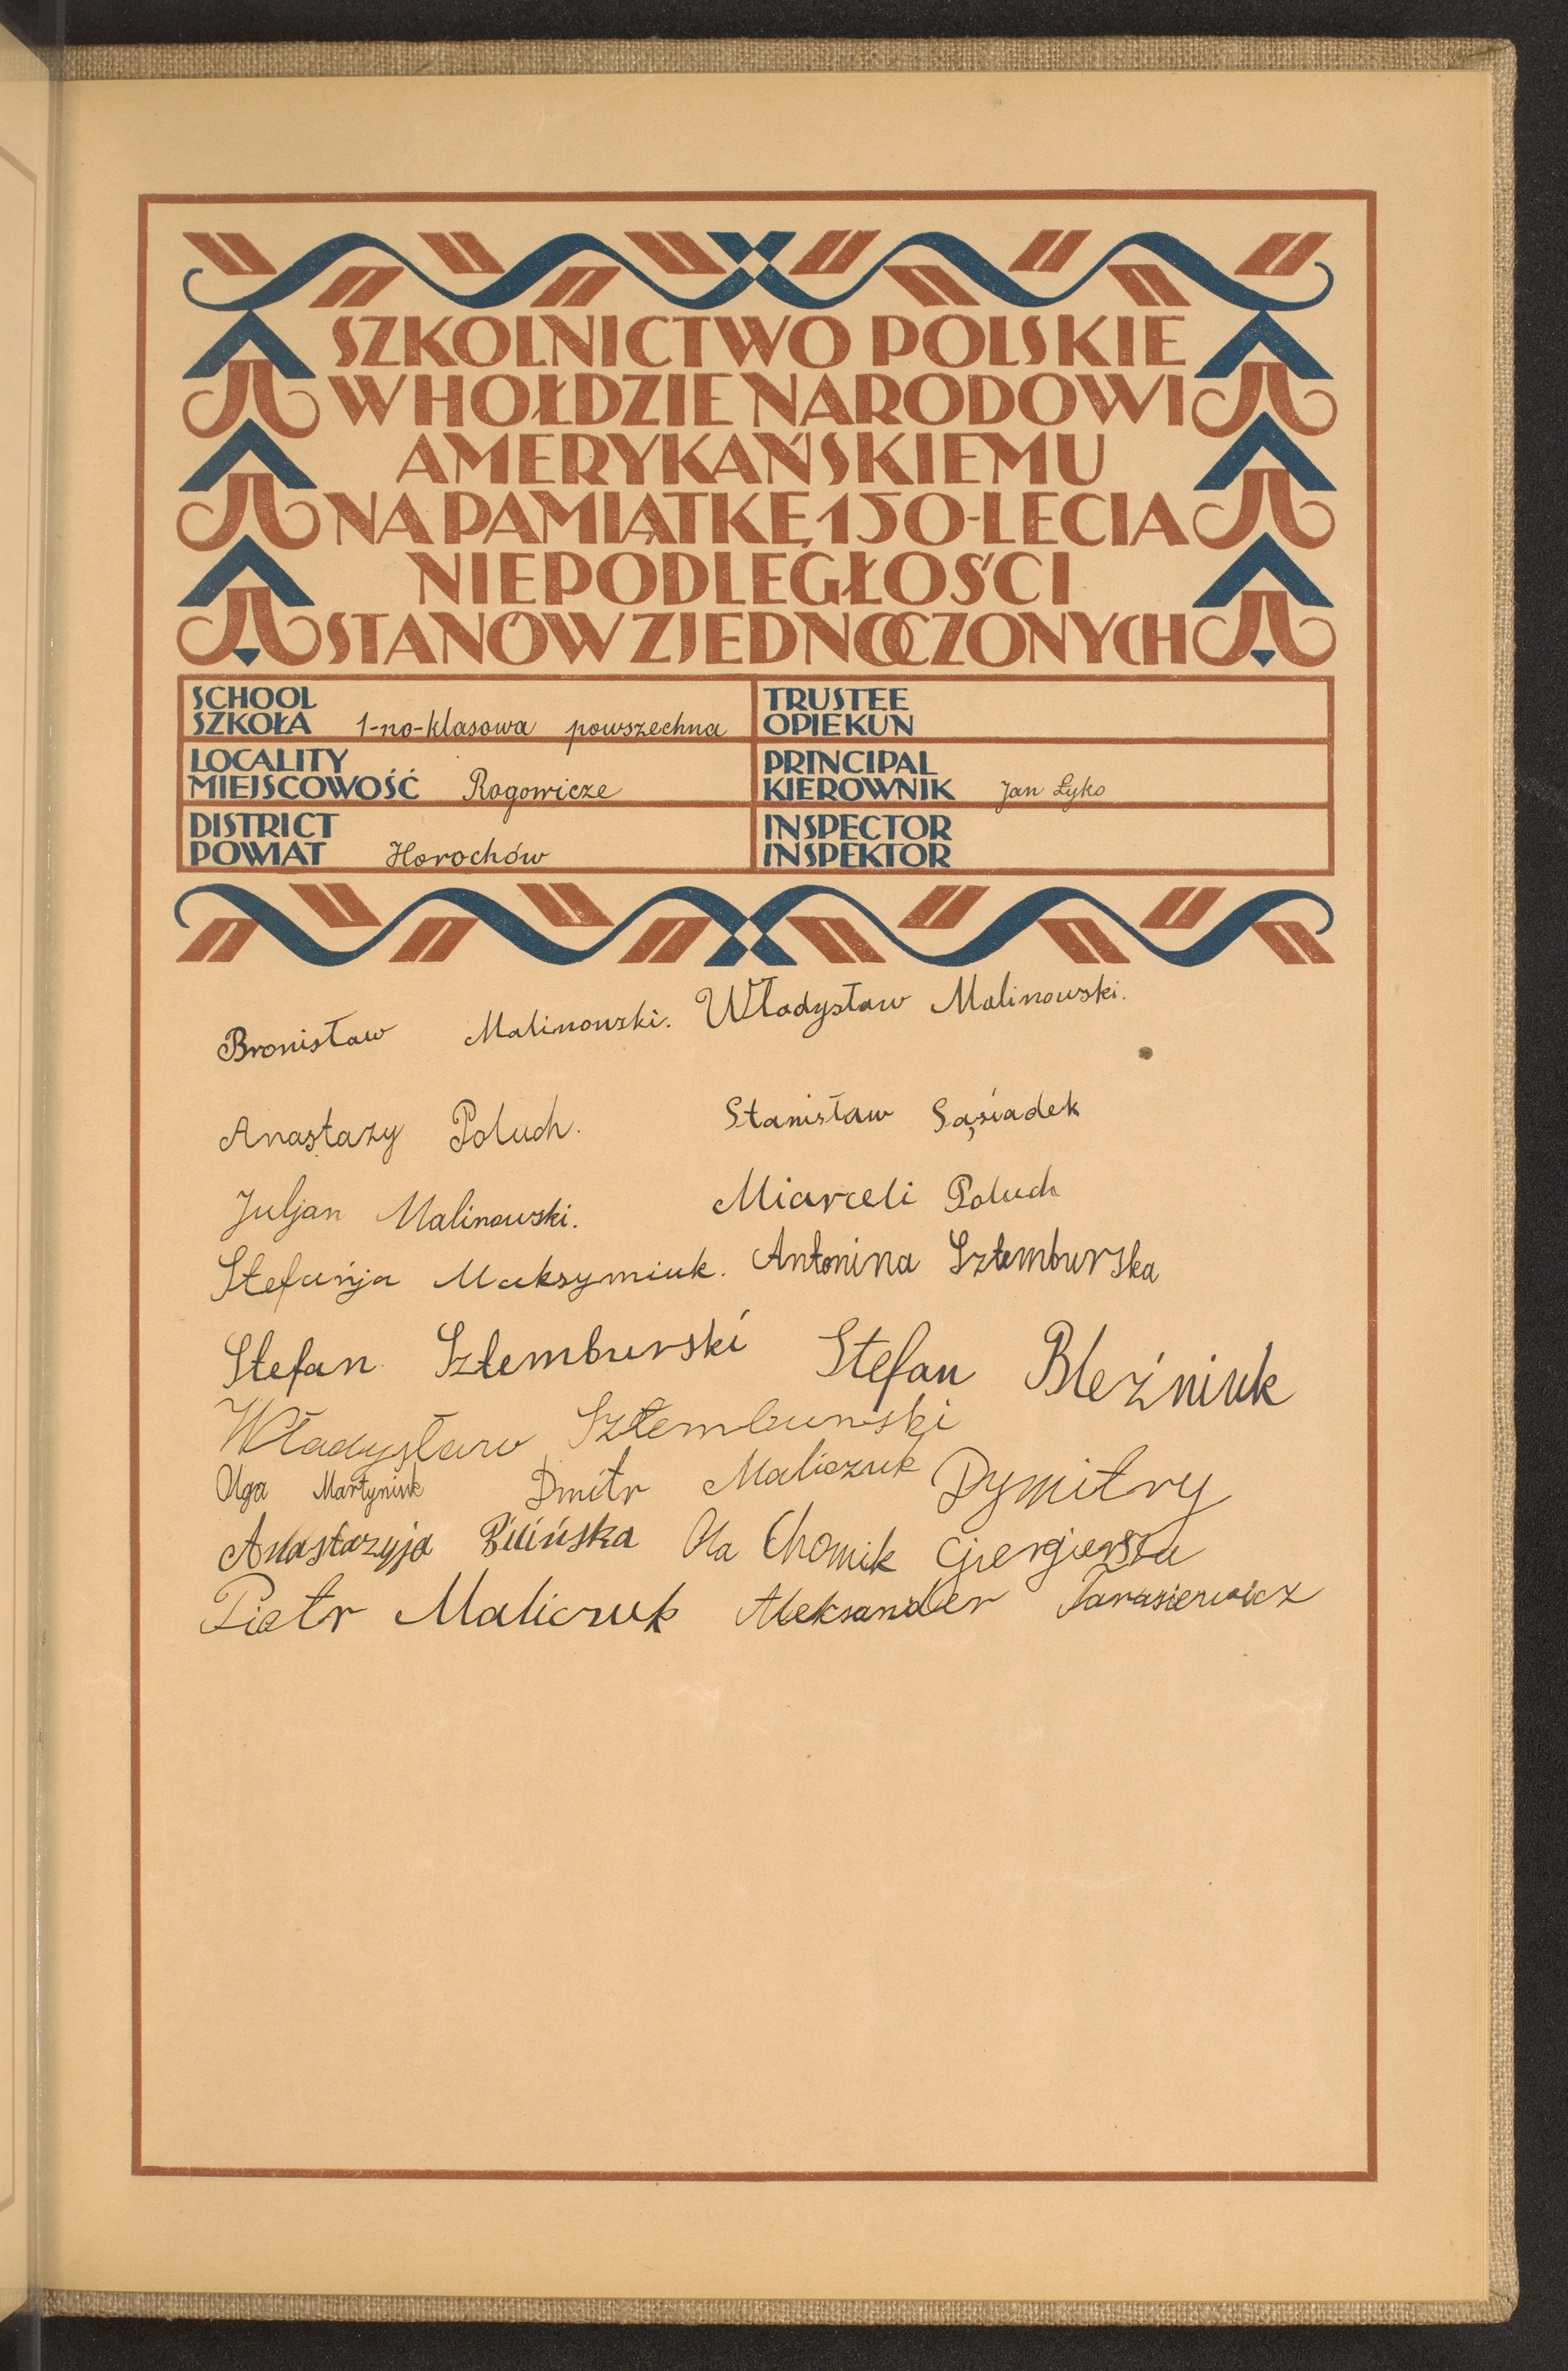 SZKOLNICTWO POLSKIE
W HOŁDZIE NARODOWI
AMERYKAŃSKIEMU
NA PAMIĄTKĘ 150-LECIA
NIEPODLEGŁOŚCI
STANÓW ZJEDNOCZONYCH
SCHOOL
SZKOŁA 1-no-klasowa powszechna
TRUSTEE
OPIEKUN
LOCALITY
MIEJSCOWOŚĆ Rogowicze
PRINCIPAL
KIEROWNIK Jan Łyko
DISTRICT
POWIAT Horochów
INSPECTOR
INSPEKTOR
Bronisław Malinowski. Władysław Malinowski.
Anastazy Poluch. Stanisław Sąsiadek
Juljan Malinowski. Miarceli Poluch
Stefańja Maksymiuk. Antonina Sztemburska
Stefan Sztemburski Stefan Bleźniuk
Władysław Sztemburski
Olga Martyniuk Dmitr Maliczuk Dymitry
Anastazyja Bilińska Ola Chomik
Piotr Maliczuk Aleksander Tarasiewicz